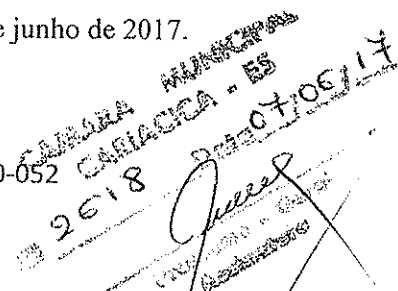 e junho de 2017.
CAMARA MUNICIPAL
CARIACICA - ES
0-052
2618 Data 07/06/17